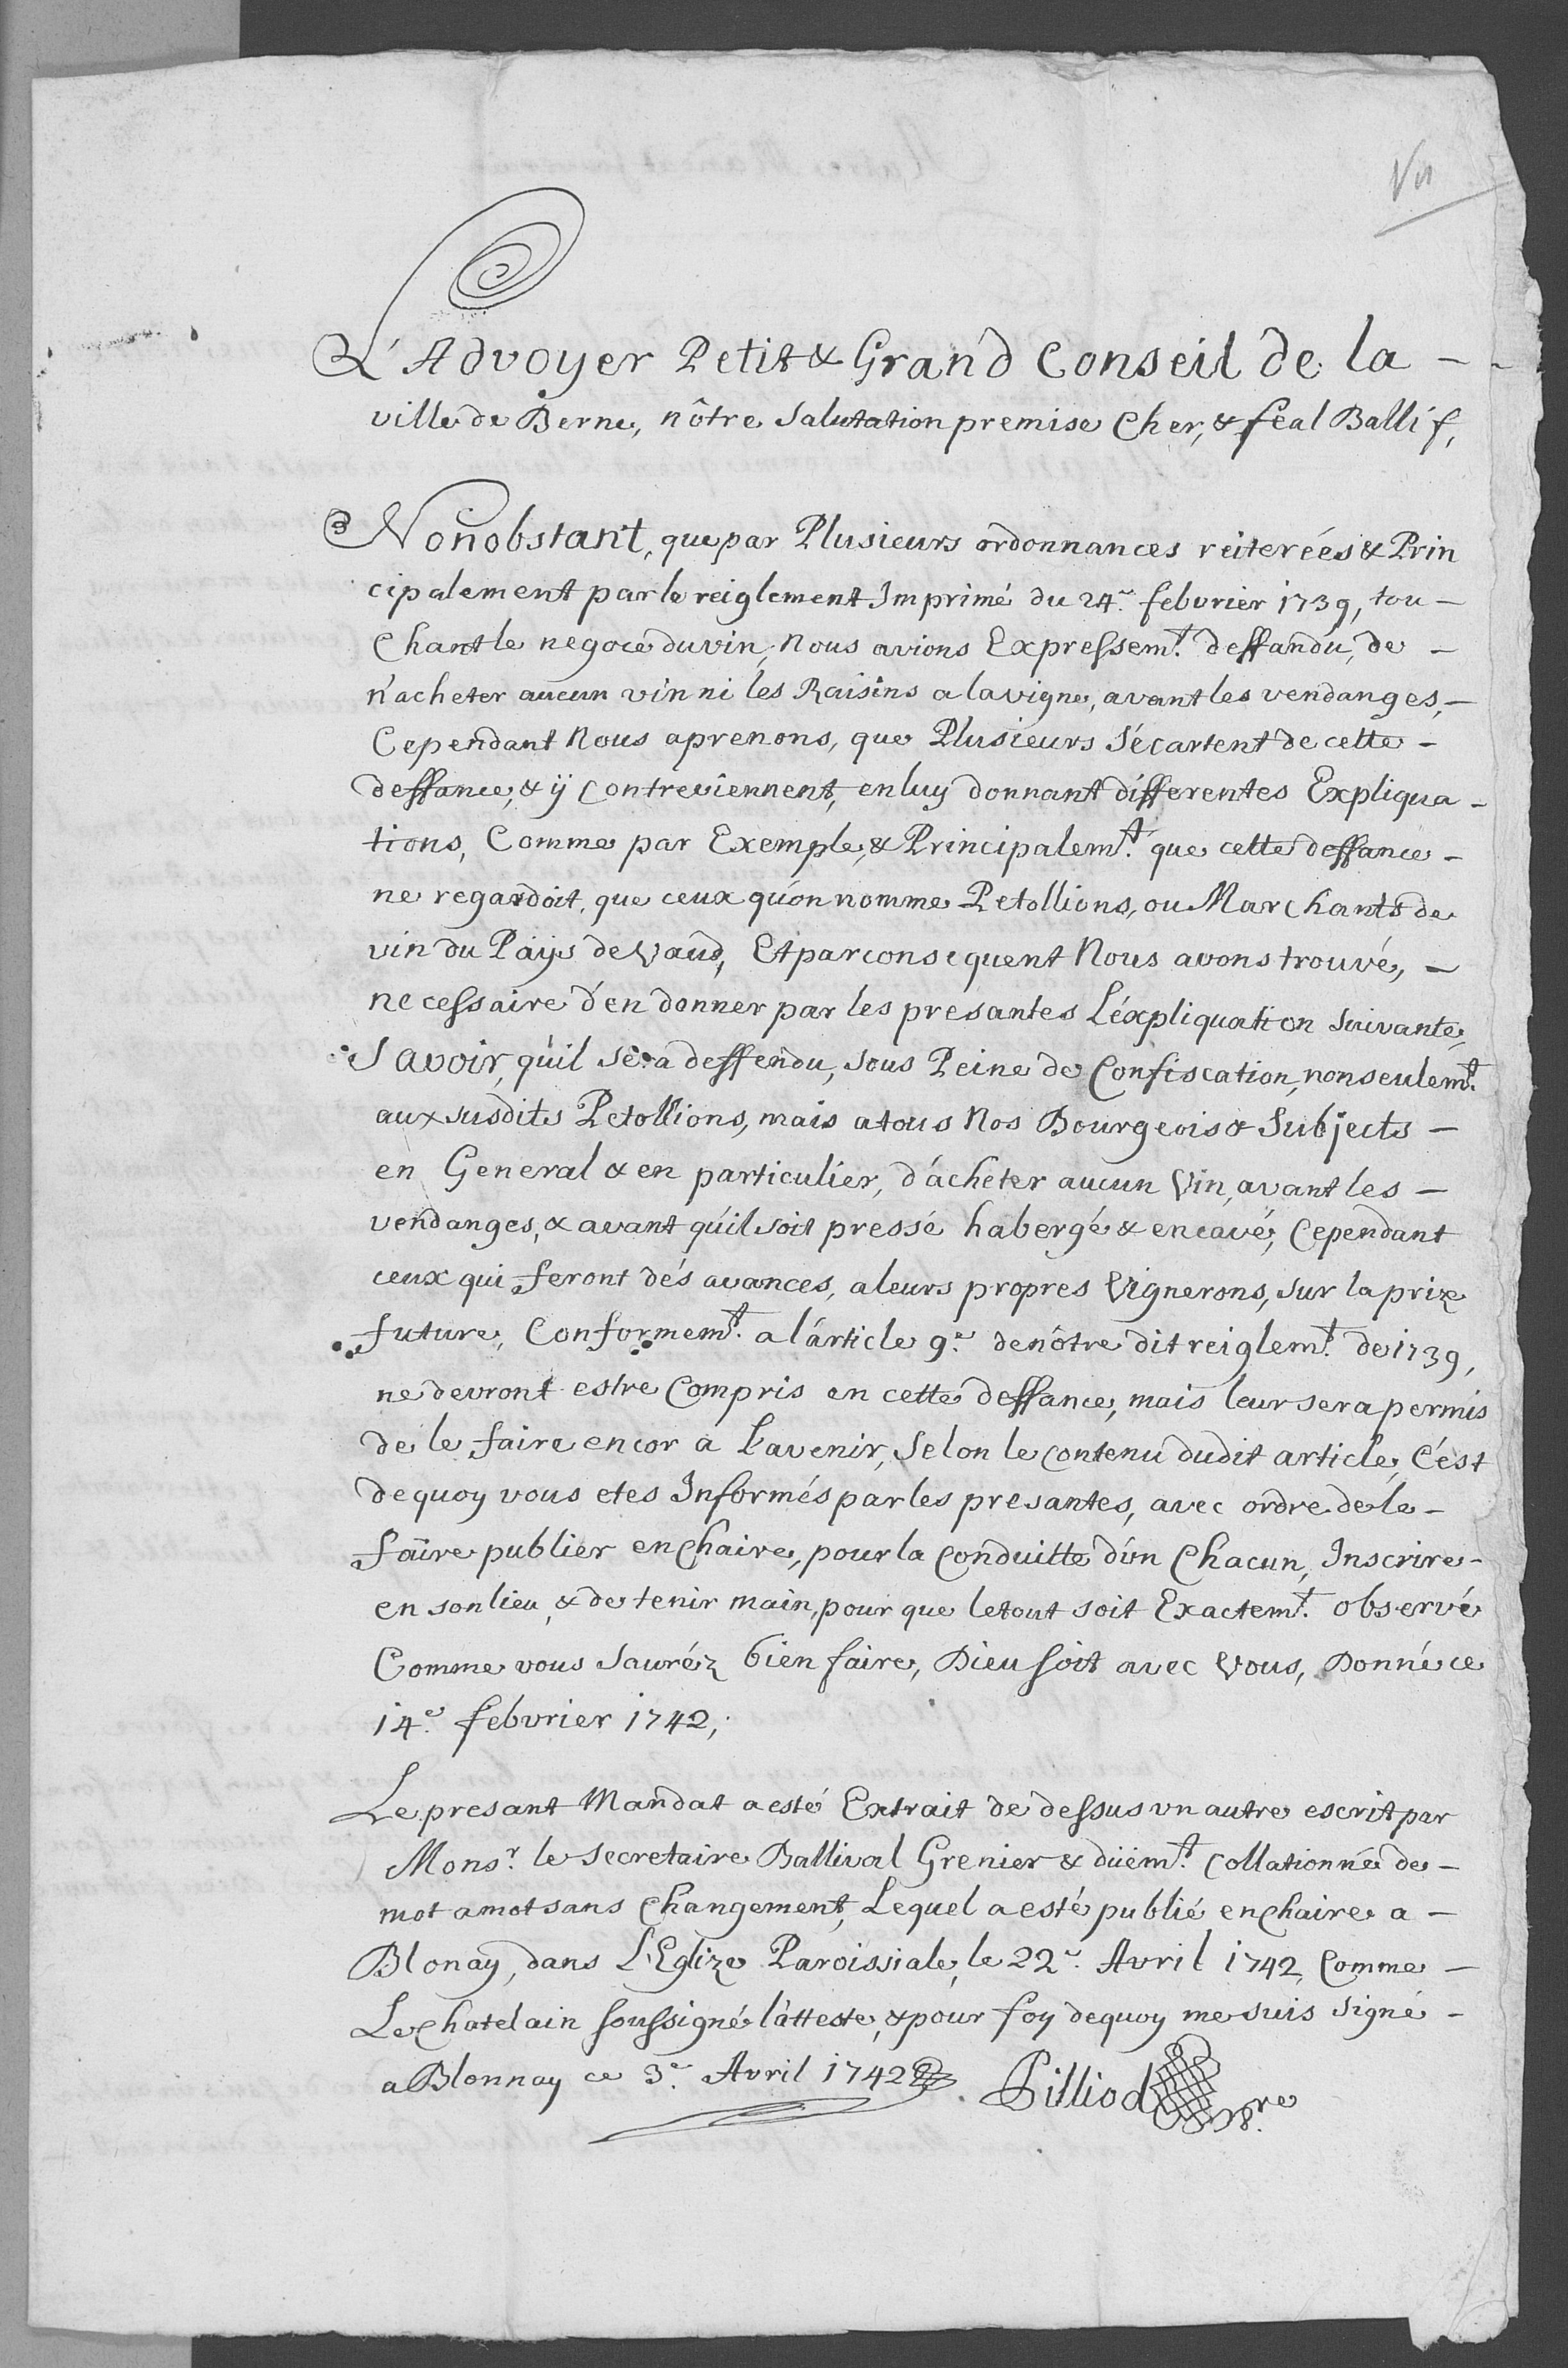 L'Advoyer Petit & Grand Conseil de la -
ville de Berne, nôtre Salutation premise Cher, & feal Ballif,
Nonobstant, que par Plusieurs ordonnances reiterées & Prin
cipalement par le reiglement Imprimé du 24.e febvrier 1739, tou-
chant le negoce du vin, Nous avions Expressem.t deffandu, de -
n'acheter aucun vin ni les Raisins a la vigne, avant les vendanges, -
Cependant Nous aprenons, que Plusieurs s'écartent de cette -
deffance, & ÿ contreviennent, en luy donnant differentes Expliqua-
tions, Comme par Exemple, & Principalem.t que cette deffance -
ne regardoit, que ceux qu'on nomme Petollions, ou Marchants de
vin du Païs de Vaud, Et par consequent Nous avons trouvé, -
necessaire d'en donner par les presantes L'éxpliquation Suivante,
Savoir, qu'il sera deffendu, sous Peine de Confiscation, non seulem.t
aux susdits Petollions, mais a tous Nos Bourgeois & Subjects -
en General & en particulier, d'acheter aucun Vin, avant les -
vendanges, & avant qu'il soit pressé habergé & encavé, Cependant
ceux qui feront dés avances, a leurs propres Vignerons, sur la prize
future, Conformem.t a l'article 9.e de nôtre dit reiglem.t de 1739,
ne devront estre Compris en cette deffance, mais leur sera permis
de le faire encor a L'avenir, Selon le contenu dudit article, C'ést
dequoy vous etes Informés par les presantes, avec ordre de le -
faire publier en Chaire, pour la Conduitte d'un Chacun, Inscrire -
en son lieu, & de tenir main, pour que le tout soit Exactem.t observé
Comme vous Sauréz bien faire, Dieu soit avec Vous, Donné ce
14.e febvrier 1742,
Le presant Mandat a esté Extrait de dessus un autre escrit par
Mons.r le Secretaire Ballival Grenier & düem.t Collationné de -
mot a mot sans Changement, Lequel a esté publié en Chaire a -
Blonay, dans L'Eglize Paroissiale, le 22.e Avril 1742, Comme -
Le Chatelain soussigné l'atteste, & pour foy dequoy me suis signé -
a Blonnay ce 3.e Avril 1742 Pilliod